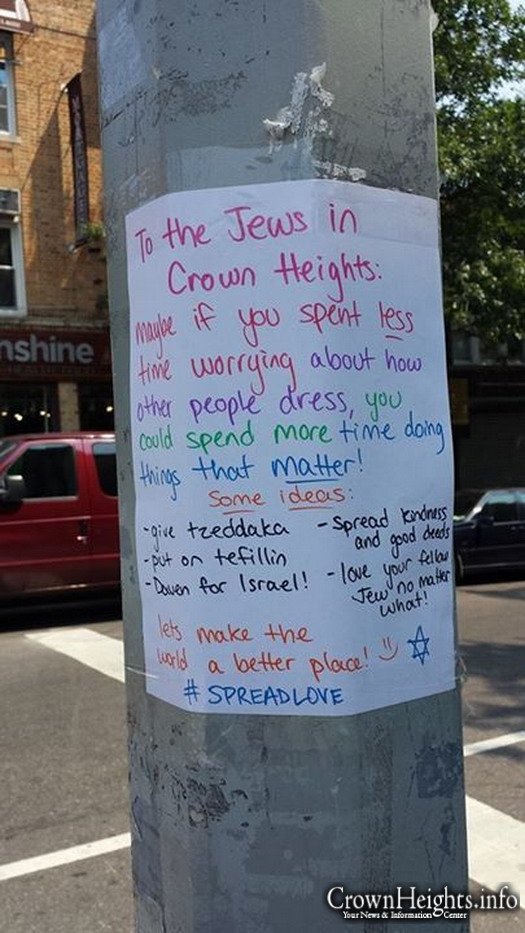 To the Jews in
Crown Heights:
maybe if you spent less
time worrying about how
other people dress, you
could spend more time doing
things that matter!
Some ideas:
-give tzeddaka
-put on tefillin
-Daven for Israel!
-Spread kindness
and good deeds
-love your fellow
Jew no matter
what!
lets make the
world a better place!
#SPREADLOVE
nshine
CrownHeights.info
Your News & Information Center